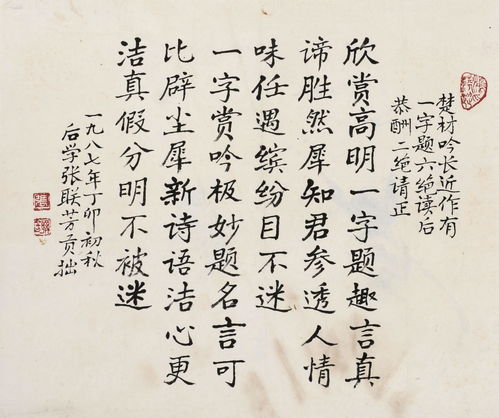 楚材吟长近作有
一字题六绝读后
恭酬二绝请正
欣赏高明一字题趣言真
谛胜然犀知君参透人情
味任遇缤纷目不迷
一字赏吟极妙题名言可
比辟尘犀新诗语洁心更
洁真假分明不被迷
一九八七年丁卯初秋
后学张联芳贡拙